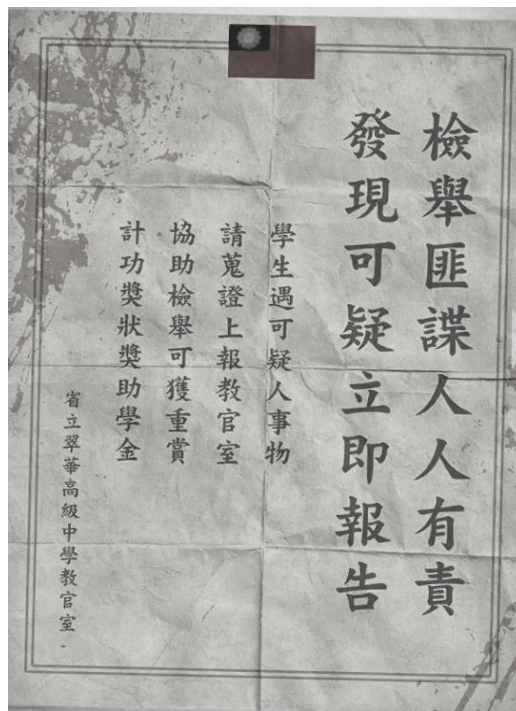 檢舉匪諜人人有責
發現可疑立即報告
學生遇可疑人事物
請蒐證上報教官室
協助檢舉可獲重賞
計功獎狀獎助學金
省立翠華高級中學教官室